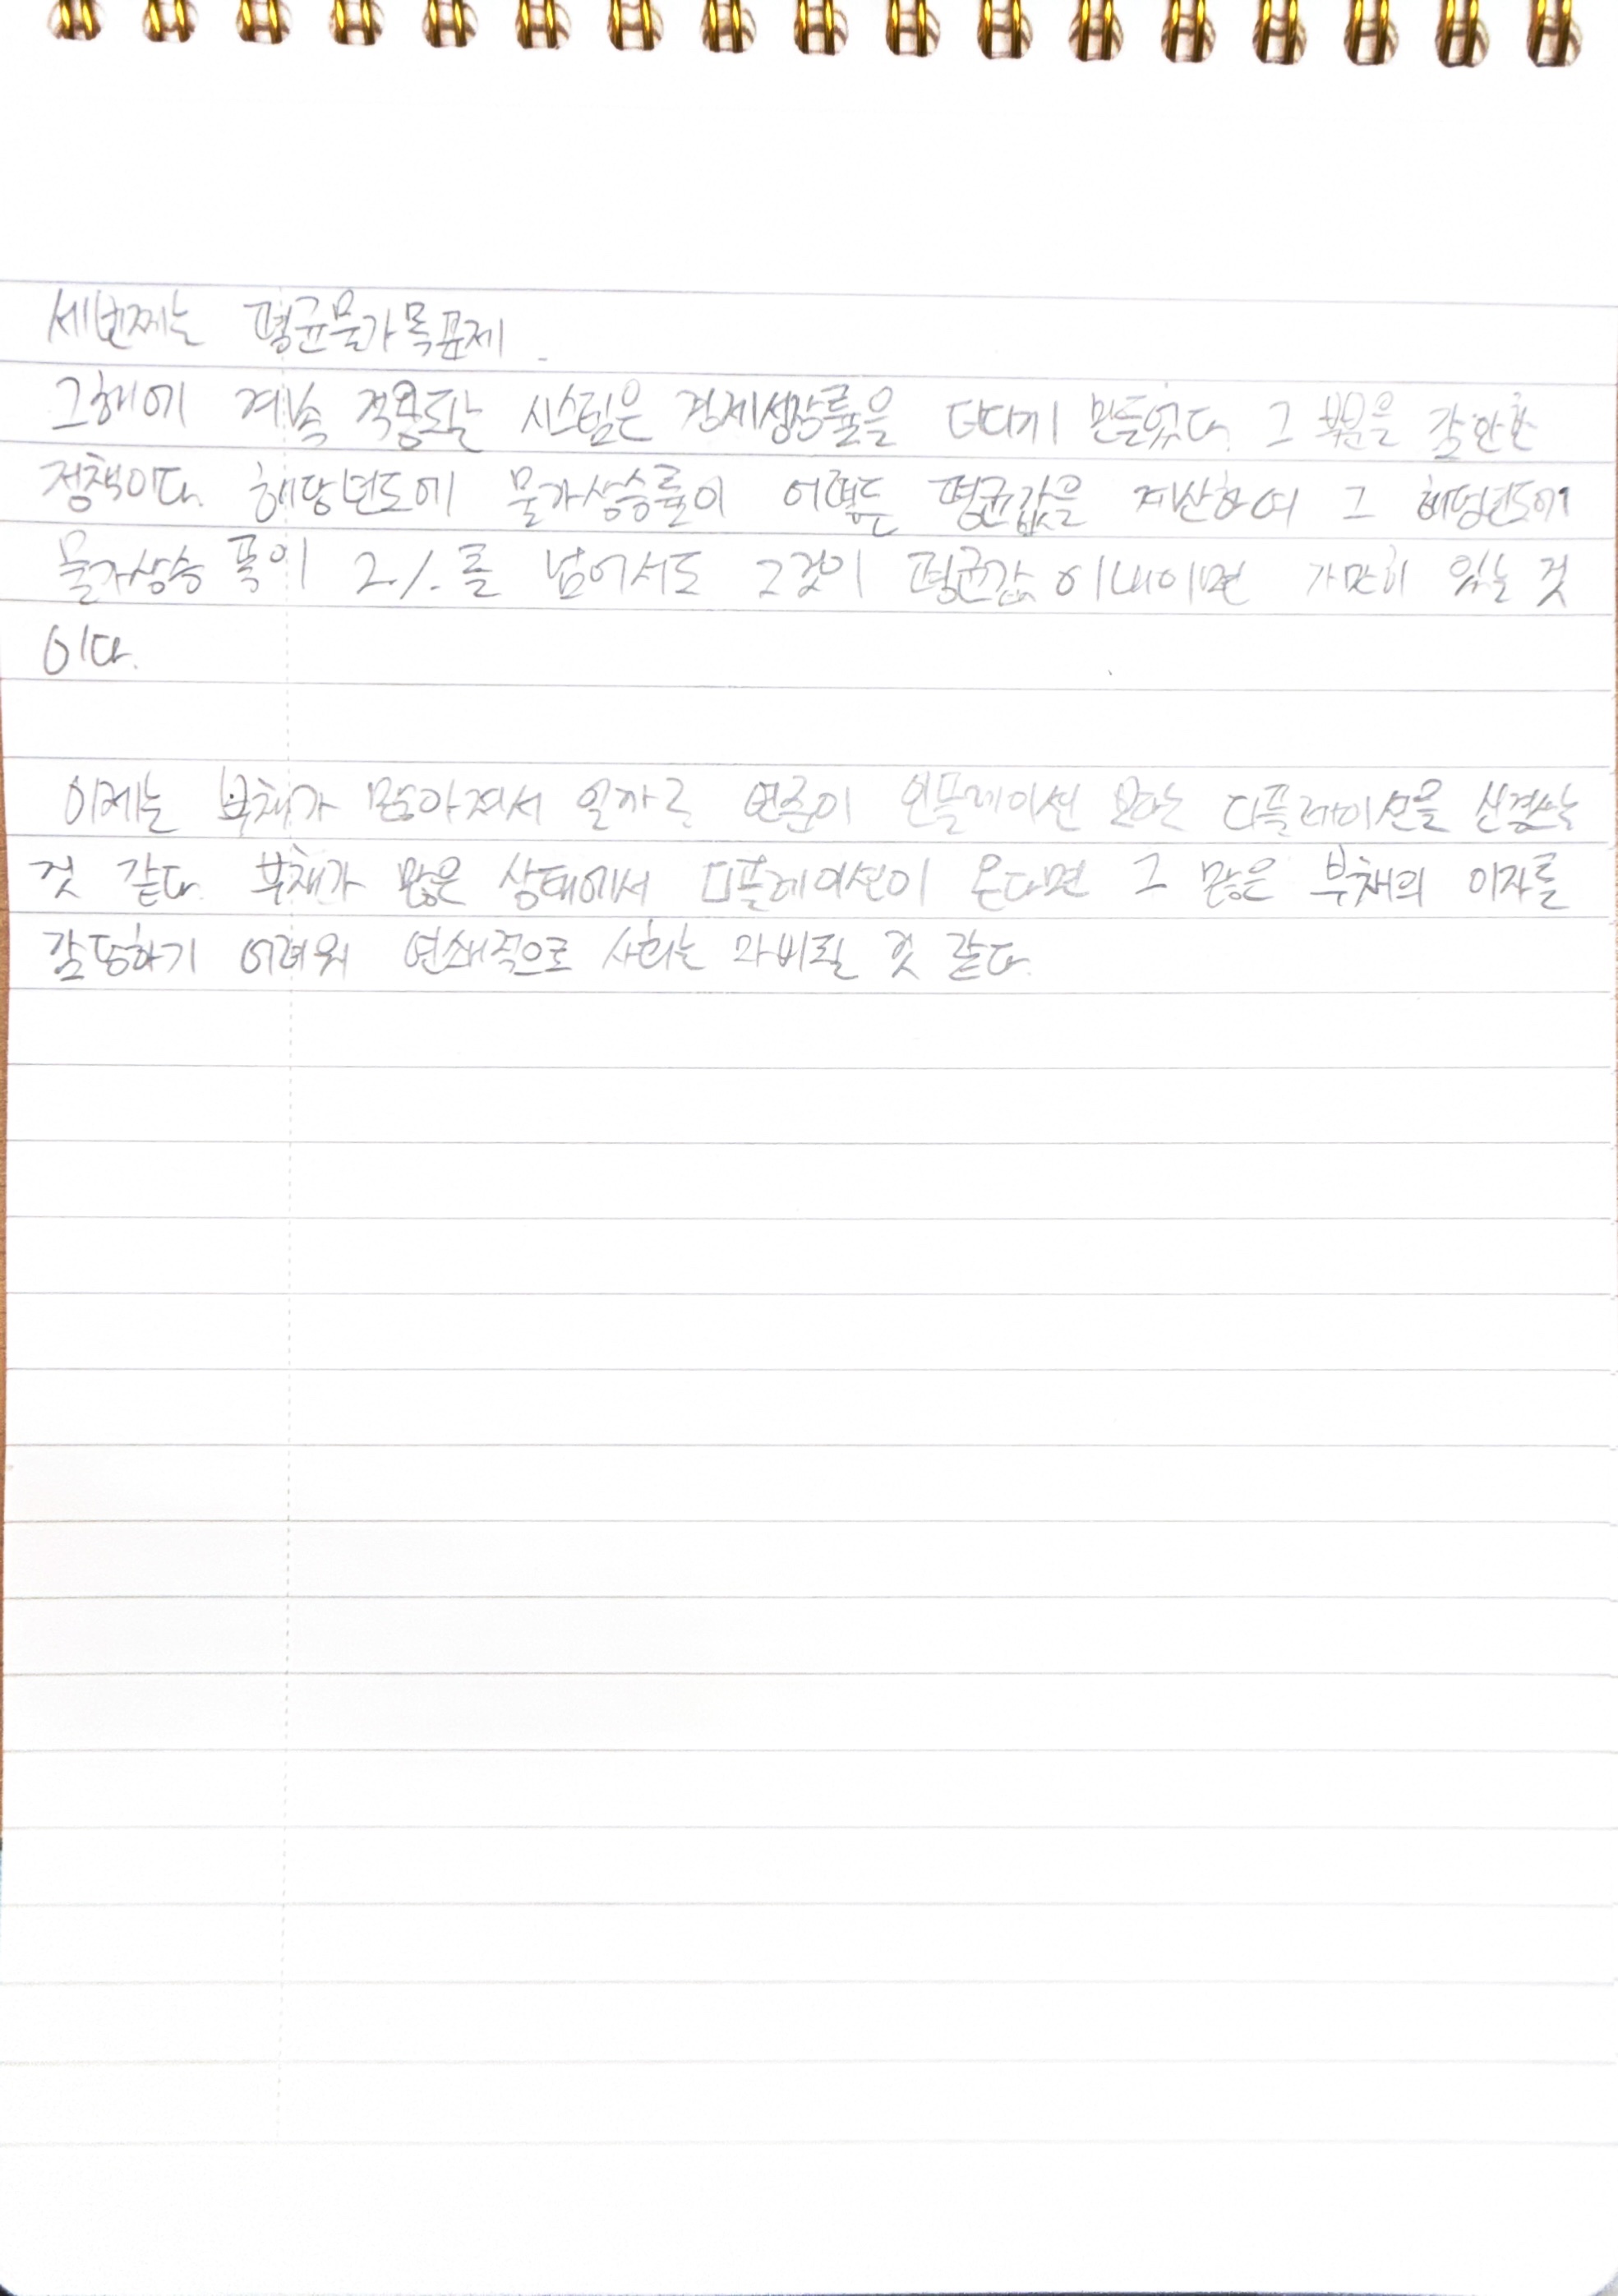 세번째는 평균물가목표제.
그해에 계속 적용되는 시스템은 경제성장률을 더디게 만들었다. 그 부분을 감안한
정책이다. 해당년도에 물가상승률이 어떻든 평균값을 계산하여 그 해당년도에
물가상승 폭이 2%를 넘어서도 그것이 평균값 이내이면 가만히 있는 것
이다.
이제는 부채가 많아져서 일까? 연준이 인플레이션 보다는 디플레이션을 신경쓰는
것 같다. 부채가 많은 상태에서 디플레이션이 온다면 그 많은 부채의 이자를
감당하기 어려워 연쇄적으로 사회는 마비될 것 같다.